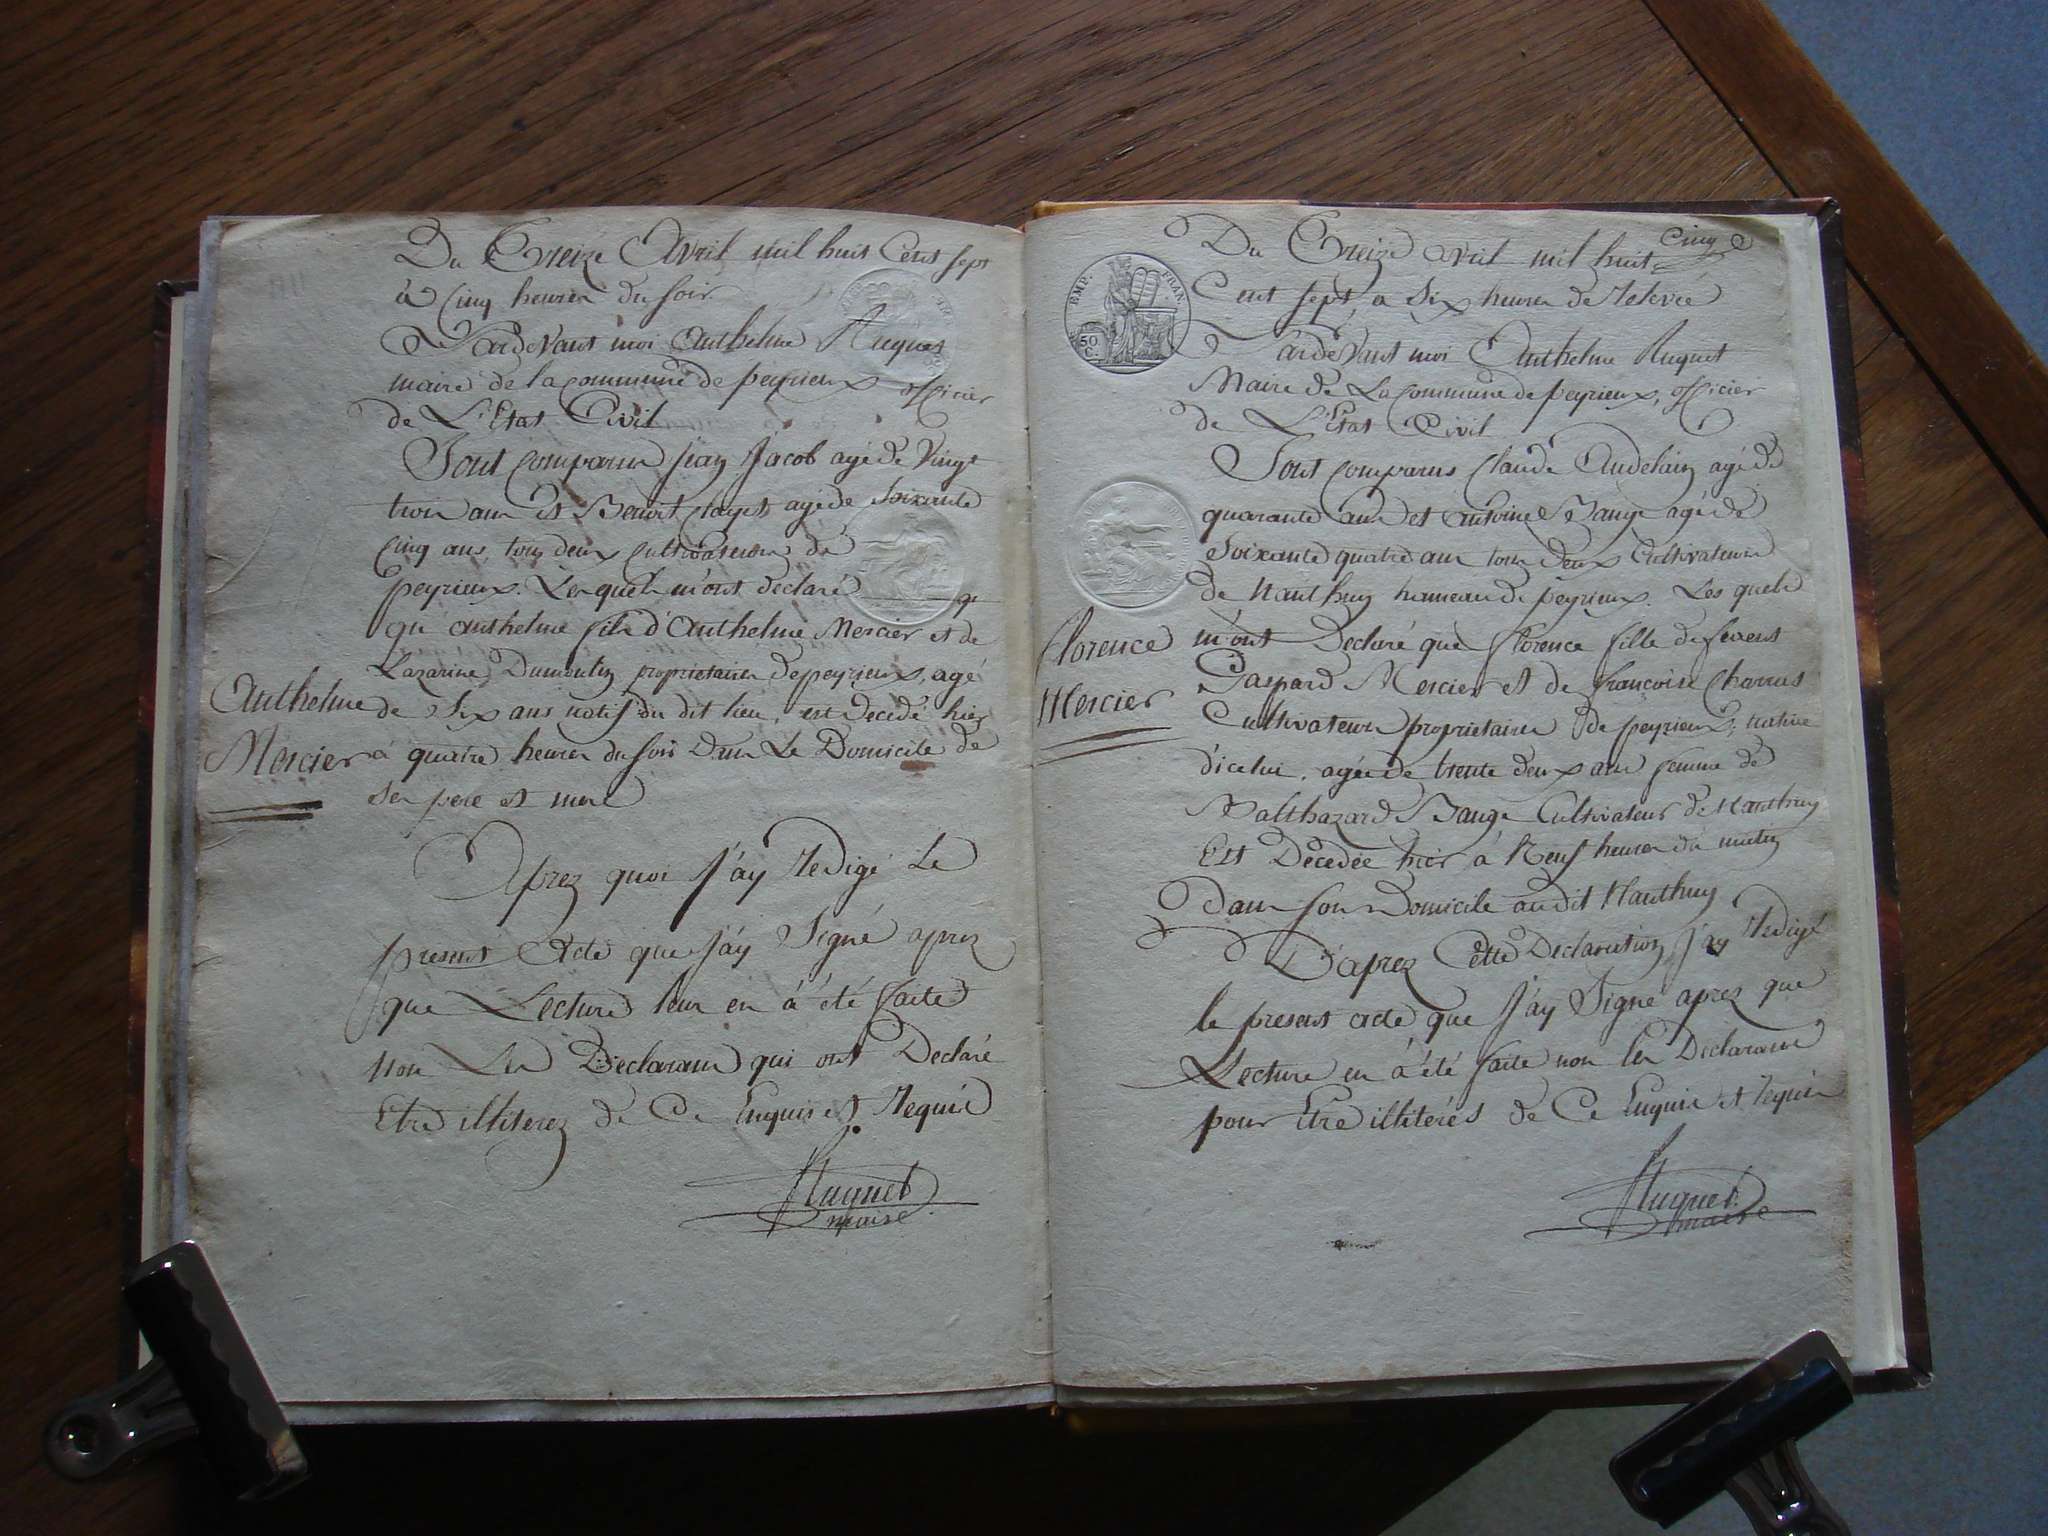 Du Treize Avril mil huit Cent sept
à Cinq heures du soir
Pardevant moi Anthelme Huguet
maire de la commune de peyrieux officier
de L'Etat Civil
Sont comparus jean Jacob agé de Vingt
trois ans et Benoit Clayet agé de soixante
Cinq ans, tous deux cultivateurs de
peyrieux. Les quels m'ont declaré
qu'anthelme fils d'Anthelme Mercier et de
Lazarine Dumoulin proprietaires de peyrieux, agé
Anthelme
Mercier
de Six ans natif du dit lieu, est decedé hier
à quatre heures du soir Dans Le Domicile de
ses pere et mere
Aprez quoi J'ay Redigé Le
present Acte que J'ay Signé aprez
que Lecture leur en à été faite
non Les Déclarans qui ont Declaré
Etre illiterez de Ce Enquis et Requis
Huguet
maire
cinq
Du Treize avril mil huit
Cent sept à Six heures de Relevée
EMP. FRAN.
50 C.
Pardevant moi Anthelme Huguet
Maire de La Commune de peyrieux, officier
de L'Etat Civil
Sont comparus Claude Andelain agé de
quarante ans et Antoine Bauge agé de
Soixante quatre ans tous deux Cultivateurs
de Nanthuy hameau de peyrieux. Les quels
Florence
Mercier
m'ont Declaré que florence fille de feu
Gaspard Mercier et de françoise Charrus
Cultivateurs proprietaires de peyrieux, native
d'icelui, agée de trente deux ans femme de
Balthazard Bauge Cultivateur de Nanthuy
Est Décedée hier à Neuf heures du matin
Dans son Domicile audit Nanthuy
D'aprez Cette Declaration J'ay Redigé
le present acte que J'ay Signé aprez que
Lecture en à été faite non les Declarans
pour Etre illiterés de Ce Enquis et Requis
Huguet
maire